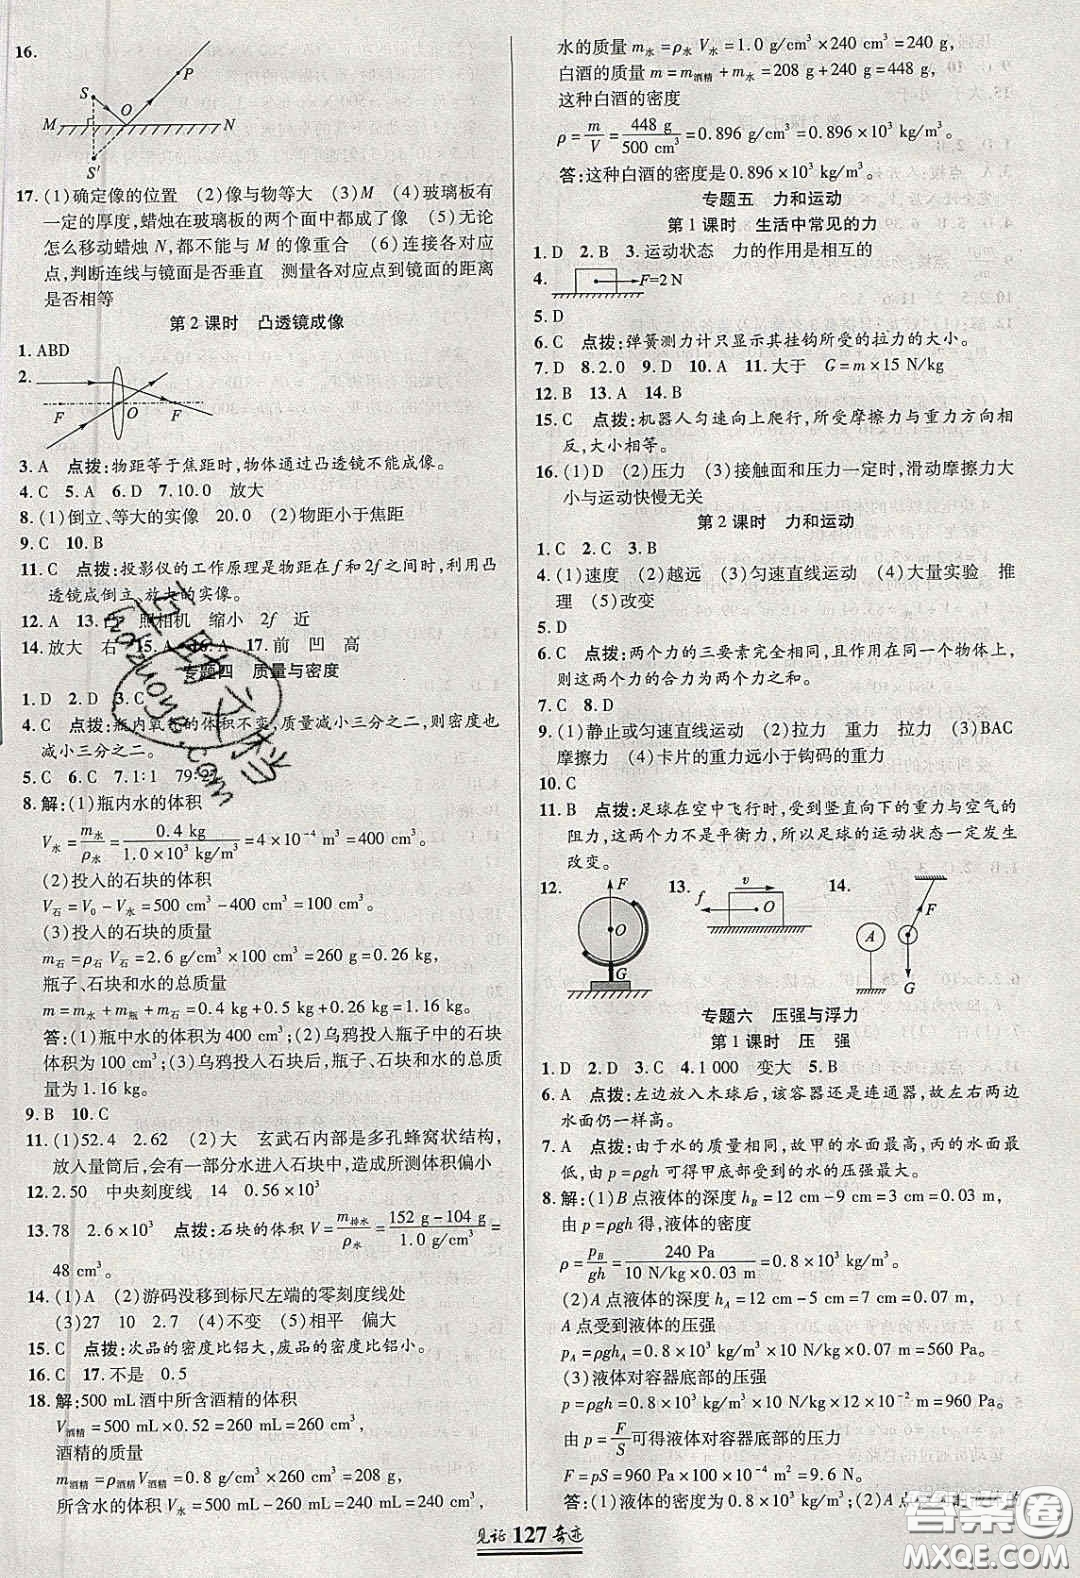 16.
P
S
O
M
N
S'
17. (1)确定像的位置 (2)像与物等大 (3)M (4)玻璃板有
一定的厚度,蜡烛在玻璃板的两个面中都成了像 (5)无论
怎么移动蜡烛 N,都不能与 M 的像重合 (6)连接各对应
点,判断连线与镜面是否垂直 测量各对应点到镜面的距离
是否相等
第 2 课时 凸透镜成像
1. ABD
2.
F O F
3. A 点拨:物距等于焦距时,物体通过凸透镜不能成像。
4. C 5. A 6. D 7. 10.0 放大
8. (1)倒立、等大的实像 20.0 (2)物距小于焦距
9. C 10. B
11. C 点拨:投影仪的工作原理是物距在 f 和 2f 之间时,利用凸
透镜成倒立、放大的实像。
12. A 13. 凸 照相机 缩小 2f 近
14. 放大 右 15. A 16. A 17. 前 凹 高
专题四 质量与密度
1. D 2. D 3. C
4. C 点拨:瓶内氧气的体积不变,质量减小三分之二,则密度也
减小三分之二。
5. C 6. C 7. 1∶1 79∶27
8. 解:(1)瓶内水的体积
V水=m水/ρ水=0.4 kg/1.0×10³ kg/m³=4×10⁻⁴ m³=400 cm³。
(2)投入的石块的体积
V石=V₀-V水=500 cm³-400 cm³=100 cm³。
(3)投入的石块的质量
m石=ρ石 V石=2.6 g/cm³×100 cm³=260 g=0.26 kg,
瓶子、石块和水的总质量
m=m水+m瓶+m石=0.4 kg+0.5 kg+0.26 kg=1.16 kg。
答:(1)瓶中水的体积为 400 cm³;(2)乌鸦投入瓶子中的石块
体积为 100 cm³;(3)乌鸦投入石块后,瓶子、石块和水的总质
量为 1.16 kg。
9. B 10. C
11. (1)52.4 2.62 (2)大 玄武石内部是多孔蜂窝状结构,
放入量筒后,会有一部分水进入石块中,造成所测体积偏小
12. 2.50 中央刻度线 14 0.56×10³
13. 78 2.6×10³ 点拨:石块的体积 V=m排水/ρ水=152 g-104 g/1.0 g/cm³=
48 cm³。
14. (1)A (2)游码没移到标尺左端的零刻度线处
(3)27 10 2.7 (4)不变 (5)相平 偏大
15. C 点拨:次品的密度比铝大,废品的密度比铝小。
16. C 17. 不是 0.5
18. 解:500 mL 酒中所含酒精的体积
V酒精=500 mL×0.52=260 mL=260 cm³
酒精的质量
m酒精=ρ酒精V酒精=0.8 g/cm³×260 cm³=208 g,
所含水的体积 V水=500 mL-260 mL=240 mL=240 cm³,
水的质量 m水=ρ水 V水=1.0 g/cm³×240 cm³=240 g,
白酒的质量 m=m酒精+m水=208 g+240 g=448 g,
这种白酒的密度
ρ=m/V=448 g/500 cm³=0.896 g/cm³=0.896×10³ kg/m³。
答:这种白酒的密度是 0.896×10³ kg/m³。
专题五 力和运动
第 1 课时 生活中常见的力
1. D 2. B 3. 运动状态 力的作用是相互的
4. F=2 N
5. D
6. C 点拨:弹簧测力计只显示其挂钩所受的拉力的大小。
7. D 8. 2.0 9. D 10. A 11. 大于 G=m×15 N/kg
12. B 13. A 14. B
15. C 点拨:机器人匀速向上爬行,所受摩擦力与重力方向相
反,大小相等。
16. (1)D (2)压力 (3)接触面和压力一定时,滑动摩擦力大
小与运动快慢无关
第 2 课时 力和运动
1. C 2. C 3. B
4. (1)速度 (2)越远 (3)匀速直线运动 (4)大量实验 推
理 (5)改变
5. D
6. C 点拨:两个力的三要素完全相同,且作用在同一个物体上,
则这两个力的合力为两个力之和。
7. C 8. D
9. (1)静止或匀速直线运动 (2)拉力 重力 拉力 (3)BAC
摩擦力 (4)卡片的重力远小于钩码的重力
10. C
11. B 点拨:足球在空中飞行时,受到竖直向下的重力与空气的
阻力,这两个力不是平衡力,所以足球的运动状态一定发生
改变。
12. F O G
13. v f O
14. F A G
专题六 压强与浮力
第 1 课时 压 强
1. D 2. D 3. C 4. 1 000 变大 5. B
6. A 点拨:左边放入木球,该容器还是连通器,故左右两边
水面仍一样高。
7. A 点拨:由于水的质量相同,故甲的水面最高,丙的水面最
低,由 p=ρgh 可得甲底部受到的水的压强最大。
8. 解:(1)B 点液体的深度 hB=12 cm-9 cm=3 cm=0.03 m,
由 p=ρgh 得,液体的密度
ρ=pB/gh=240 Pa/10 N/kg×0.03 m=0.8×10³ kg/m³。
(2)A 点液体的深度 hA=12 cm-5 cm=7 cm=0.07 m,
A 点受到液体的压强
pA=ρghA=0.8×10³ kg/m³×10 N/kg×0.07 m=560 Pa。
(3)液体对容器底部的压强
p=ρgh=0.8×10³ kg/m³×10 N/kg×12×10⁻² m=960 Pa,
由 p=F/S可得液体对容器底部的压力
F=pS=960 Pa×100×10⁻⁴ m²=9.6 N。
答:(1)液体的密度为 0.8×10³ kg/m³;(2)A 点
见证 127 奇迹
答案圈
MXQE.COM